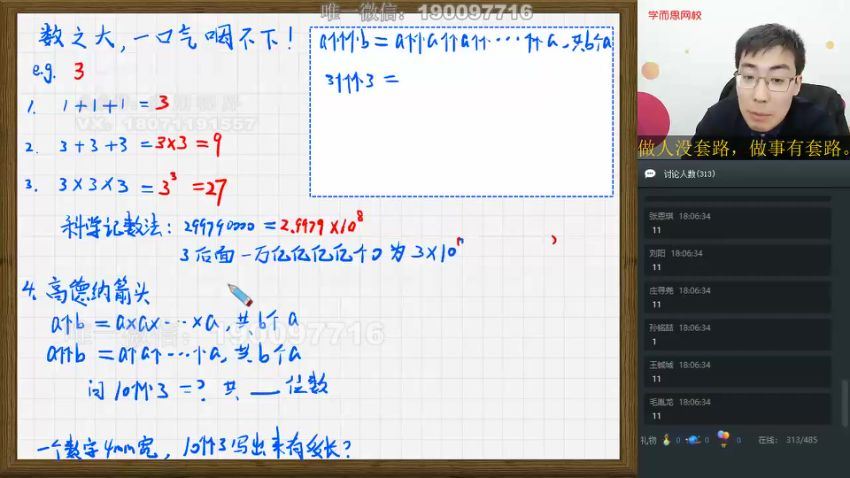 唯一微信：190097716
数之大，一口气咽不下！
e.g. 3
1. 1+1+1 = 3
2. 3+3+3 = 3×3 = 9
VX: 18071191557
3. 3×3×3 = 3³ = 27
科学记数法：299790000 = 2.9979×10⁸
3后面一万亿亿亿亿个0为3×10ⁿ
4. 高德纳箭头
a↑b = a×a×…×a，共b个a
唯一微信：190097716
a↑↑b = a↑a↑…↑a，共b个a
问10↑↑3 = ? 共__位数
一个数字4mm宽，10↑↑3写出来有多长？
a↑↑↑b = a↑↑a↑↑a↑↑…↑↑a，共b个a
3↑↑↑3 =
学而思网校
做人没套路，做事有套路。
讨论人数(313)
张恩琪 18:06:34
11
刘阳 18:06:34
11
庄寻尧 18:06:34
11
孙铭喆 18:06:34
1
王铖域 18:06:34
11
毛胤龙 18:06:34
11
礼物 0 0 0 在线： 313/485